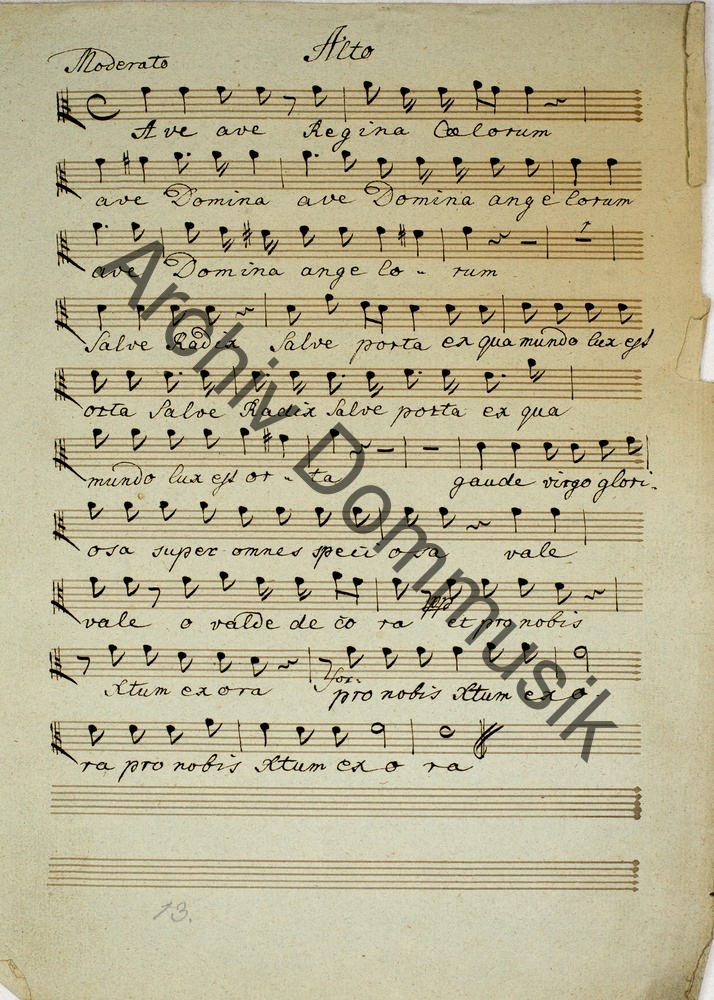 Alto
Moderato
Ave ave Regina Cœlorum
ave Domina ave Domina angelorum
ave Domina angelo - rum
Salve Radix Salve porta ex qua mundo lux est
orta Salve Radix Salve porta ex qua
mundo lux est or - ta gaude virgo glori-
osa super omnes speci osa vale
vale o valde de co ra et pro nobis
Xtum exora for: pro nobis Xtum exo-
ra pro nobis Xtum exo ra
13.
Archiv Dommusik